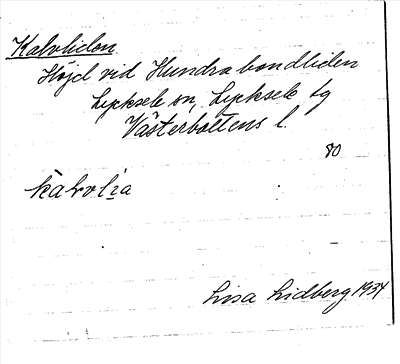 Kalvliden
Höjd vid Hundrabondliden
Lycksele sn, Lycksele tg
Västerbottens l.
80
kalvlia
Lisa Lidberg 1934